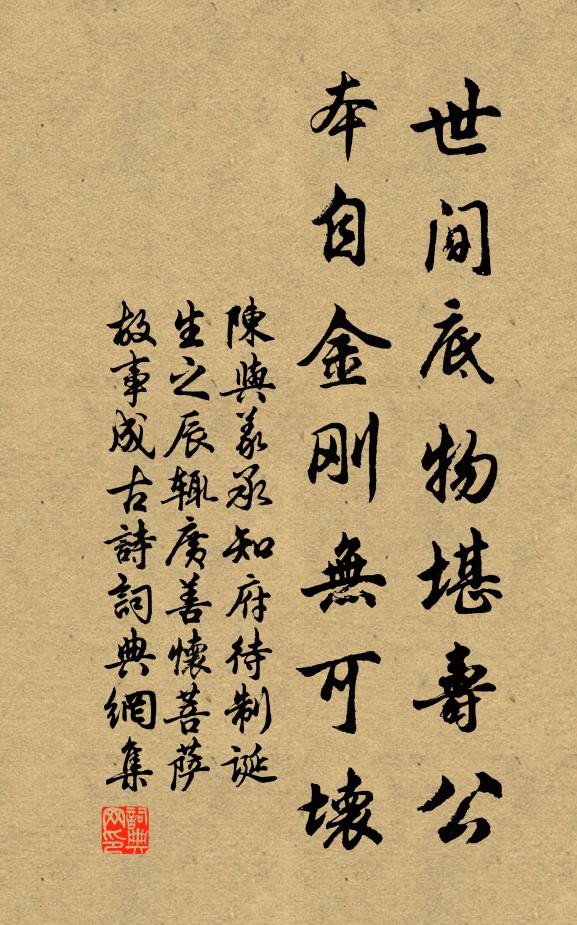 世間底物堪壽公
本自金刚無可壞
陳與義承知府待制誕
生之辰輒廣善懷菩薩
故事成古詩詞典網集
詞典網印